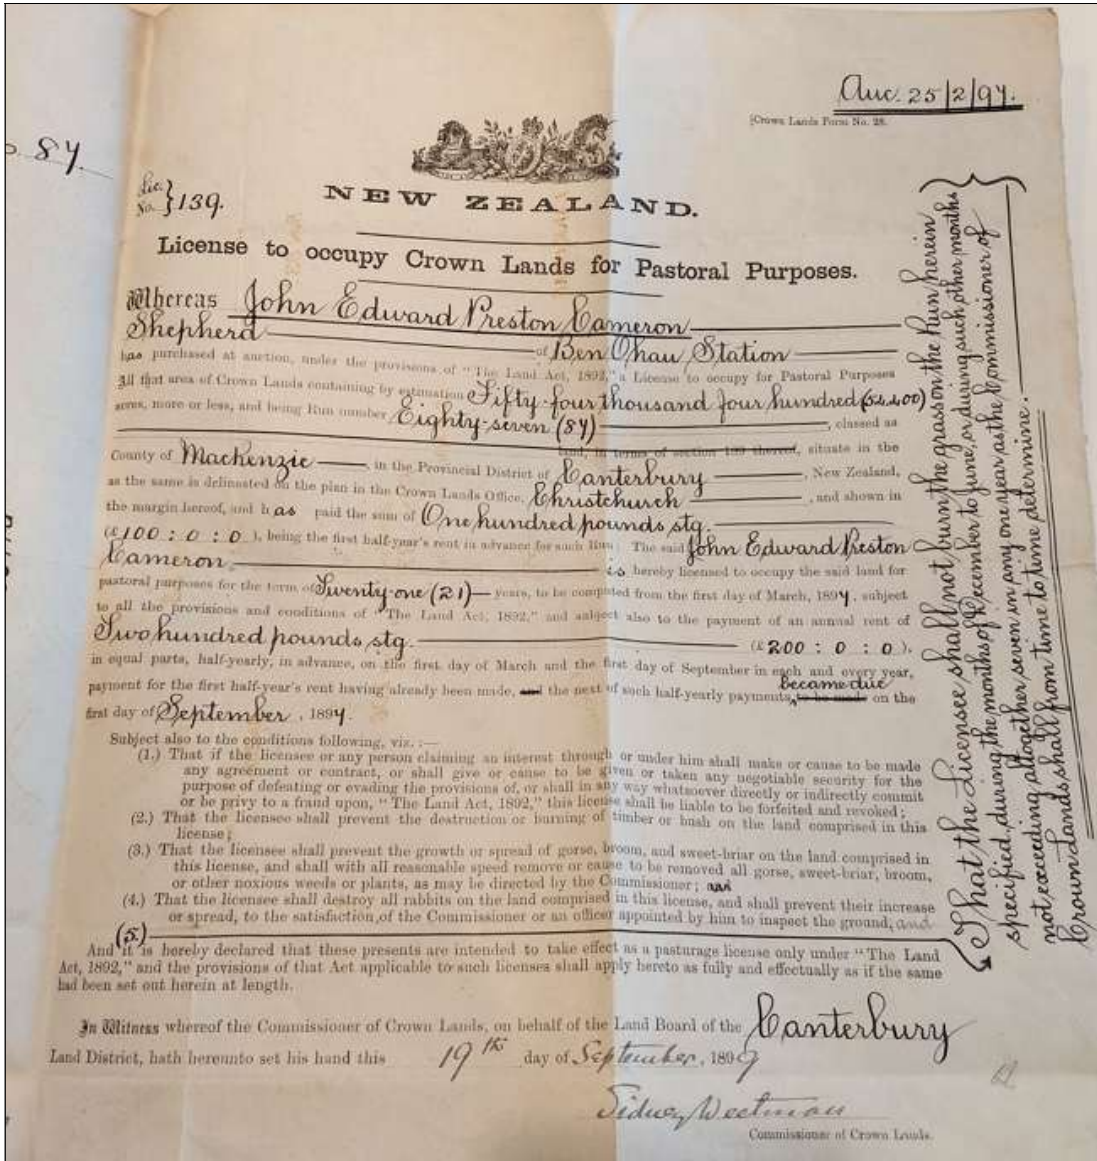 Auc. 25/2/97.
Crown Lands Form No. 28.
87
Lic.
No. } 139.
NEW ZEALAND.
License to occupy Crown Lands for Pastoral Purposes.
Whereas John Edward Preston Cameron
Shepherd of Ben Ohau Station
has purchased at auction, under the provisions of "The Land Act, 1892," a License to occupy for Pastoral Purposes
All that area of Crown Lands containing by estimation Fifty-four thousand four hundred (54400)
acres, more or less, and being Run number Eighty-seven (87), classed as
land, in terms of section 199 thereof, situate in the
County of Mackenzie, in the Provincial District of Canterbury, New Zealand,
as the same is delineated on the plan in the Crown Lands Office, Christchurch, and shown in
the margin hereof, and has paid the sum of One hundred pounds stg.
(£100 : 0 : 0), being the first half-year's rent in advance for such Run: The said John Edward Preston
Cameron is hereby licensed to occupy the said land for
pastoral purposes for the term of Twenty-one (21) years, to be computed from the first day of March, 1897, subject
to all the provisions and conditions of "The Land Act, 1892," and subject also to the payment of an annual rent of
Two hundred pounds stg. (£200 : 0 : 0),
in equal parts, half-yearly, in advance, on the first day of March and the first day of September in each and every year,
became due
payment for the first half-year's rent having already been made, and the next of such half-yearly payments to be made on the
first day of September, 1897.
Subject also to the conditions following, viz.:—
(1.) That if the licensee or any person claiming an interest through or under him shall make or cause to be made
any agreement or contract, or shall give or cause to be given or taken any negotiable security for the
purpose of defeating or evading the provisions of, or shall in any way whatsoever directly or indirectly commit
or be privy to a fraud upon, "The Land Act, 1892," this license shall be liable to be forfeited and revoked;
(2.) That the licensee shall prevent the destruction or burning of timber or bush on the land comprised in this
license;
(3.) That the licensee shall prevent the growth or spread of gorse, broom, and sweet-briar on the land comprised in
this license, and shall with all reasonable speed remove or cause to be removed all gorse, sweet-briar, broom,
or other noxious weeds or plants, as may be directed by the Commissioner; and
(4.) That the licensee shall destroy all rabbits on the land comprised in this license, and shall prevent their increase
or spread, to the satisfaction of the Commissioner or an officer appointed by him to inspect the ground, and
(5.)
That the Licensee shall not burn the grass on the run herein
specified, during the months of December to June, or during such other months
not exceeding altogether seven in any one year as the Commissioner of
Crown Lands shall from time to time determine.
And it is hereby declared that these presents are intended to take effect as a pasturage license only under "The Land
Act, 1892," and the provisions of that Act applicable to such licenses shall apply hereto as fully and effectually as if the same
had been set out herein at length.
In Witness whereof the Commissioner of Crown Lands, on behalf of the Land Board of the Canterbury
Land District, hath hereunto set his hand this 19th day of September, 1899
Sidney Weetman
Commissioner of Crown Lands.